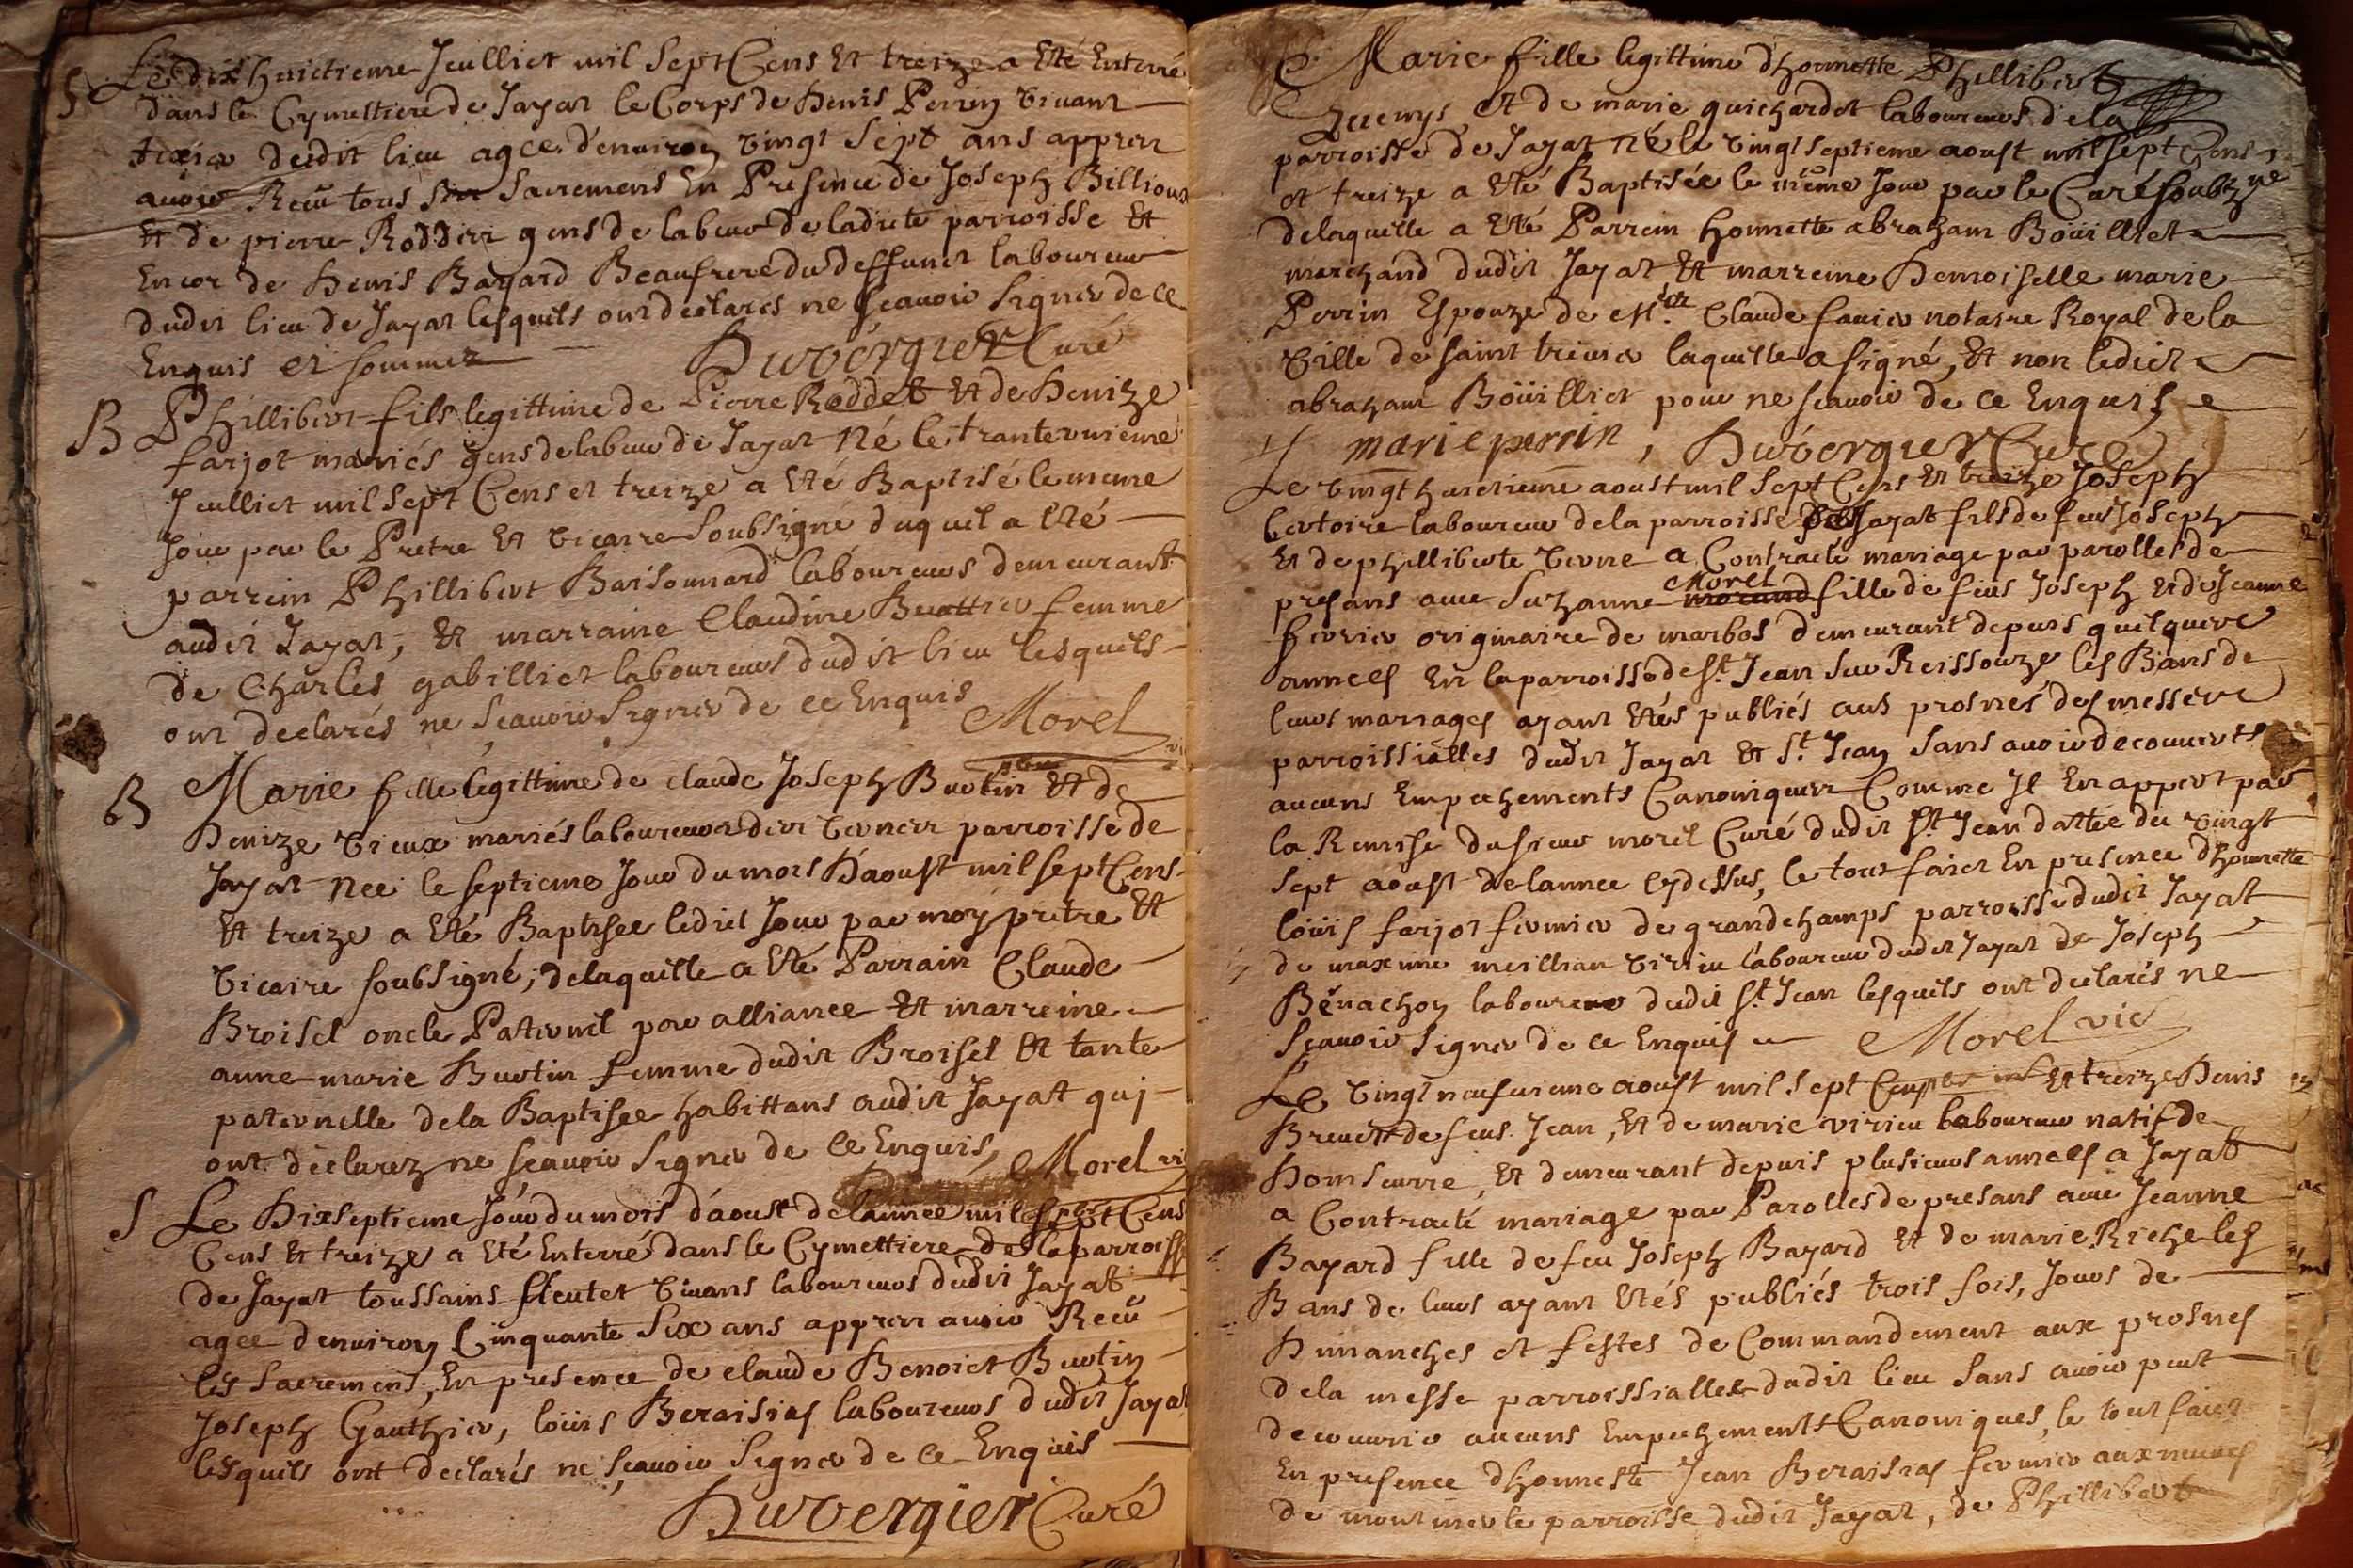 S Le dixhuictieme Jeulliet mil Sept Cens Et treize a Eté Enterré
dans le Cymettiere de Jayat le Corps de Denis Perrin vivant
dudit lieu agee d'environ vingt Sept ans appres
avoir Receü tous Sacremens En Presence de Joseph Billioux
Et de pierre Roddet gens de labeur de ladite parroisse Et
Encor de Denis Bayard Beaufrere du deffunct laboureur
dudit lieu de Jayat lesquels ont declarés ne sçavoir Signer de ce
Enquis et sommez Duvergier Curé
B Phillibert fils legittime de Pierre Roddet Et de Denize
farjot mariés gens de labeur de Jayat Né le tranteunieme
Jeulliet mil sept Cens et treize a Eté Baptisé le meme
Jour par le Pretre Et vicaire Soubsigné duquel a Eté
parrein Phillibert Baisonnard laboureurs demeurant
audit Jayat, Et marraine Claudine femme
de Charles gabilliet laboureurs dudit lieu lesquels
ont declarés ne Sçavoir Signer de ce Enquis Morel
B Marie fille legittime de claude Joseph Buotin Et de
Denize vieux mariés laboureurs des parroisse de
Jayat Nee le septieme Jour du mois D'aoust mil sept Cens
Et treize a Eté Baptisee ledict Jour par moy pretre Et
vicaire soubsigné, de laquelle a Eté Parrain Claude
Broiset oncle Paternel par alliance Et marreine
anne marie Buotin femme dudit Broiset Et tante
paternelle de la Baptisee habittans audit Jayat qui
ont declarez ne sçavoir Signer de ce Enquis, Morel vi
S Le Dixseptieme Jour du mois d'aoust de lannee mil sept Cens
Cens Et treize a Eté Enterré dans le Cymettiere de la parroisse
de Jayat toussains vivans laboureurs dudit Jayat
agee denviron Cinquante Six ans appres avoir Receü
les Sacremens, En presence de claude Benoict Buotin
Joseph Gauthier, loüis Beraisias laboureurs dudit Jayat
lesquels ont declarés ne Sçavoir Signer de ce Enquis
Duvergier Curé
Marie fille legittime d'honnette Phillibert
et de marie guichardet laboureurs de la
parroisse de Jayat Né le vingtseptieme aoust mil sept Cens
et treize a Eté Baptisée le même Jour par le Curé soubzne
de laquelle a Eté Parrein honnette abraham Boüilliet
marchand dudit Jayat Et marreine Demoiselle marie
Perrin Espouze de Mtre Claude favier notaire Royal de la
ville de saint trivier laquelle a signé, Et non ledict
abraham Boüilliet pour ne sçavoir de ce Enquis
marie perrin, Duvergier Curé
Le vingthuictieme aoust mil Sept Cens Et treize Joseph
bertoire laboureur de la parroisse de Jayat fils de feus Joseph
Et de phelliberte verne a Contracté mariage par parolles de
presans avec Suzanne Morel fille de feus Joseph Et de Jeanne
fevrier originaire de marbos demeurant depuis quelques
annees En la parroisse de St Jean Sur Reissouze, les Bans de
leurs mariages ayant Etés publiés aux prosnes des messes
parroissialles dudit Jayat Et St Jean Sans avoir decouverts
aucuns Empechements Canoniques Comme Jl En appert par
la Remise du sieur morel Curé dudit St Jean dattée du vingt
Sept aoust de lannee cydessus, le tout faict En presence d'honnette
loüis farjot fermier de grandchamps parroisse dudit Jayat
de maxime meillian virieu laboureur dudit Jayat de Joseph
Bénachon laboureur dudit St Jean lesquels ont declarés ne
Sçavoir Signer de ce Enquis Morel vic
Le vingt neufvieme aoust mil Sept Et treize Denis
Brevet de feus Jean, Et de marie virieu laboureur natif de
Domseurre, Et demeurant depuis plusieurs annees a Jayat
a Contracté mariage par Parolles de presans avec Jeanne
Bayard fille de feu Joseph Bayard Et de marie Riche les
Bans de leurs ayant Etés publiés trois fois, Jours de
Dimanches et festes de Commandement aux prosnes
de la messe parroissialle dudit lieu Sans avoir peut
decouvrir aucuns Empechements Canoniques, le tout faict
En presence d'honneste Jean Beraisias fermier aux
de parroisse dudit Jayat, de Phillibert